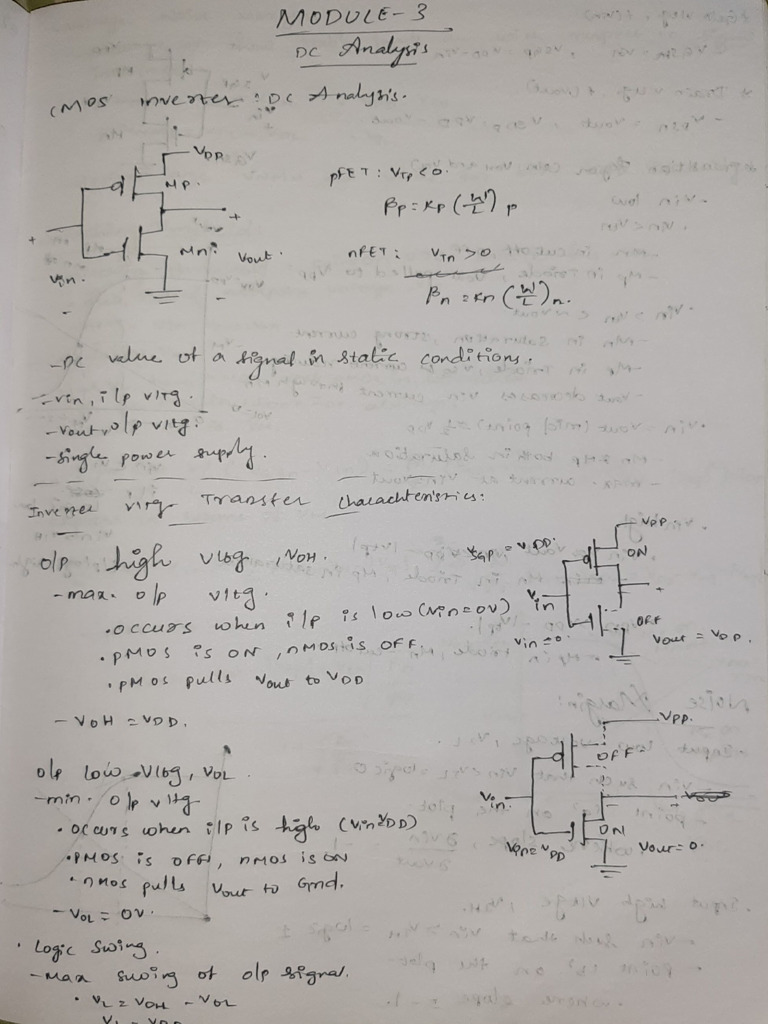 MODULE-3
DC Analysis
CMOS inverter: DC Analysis.
VDD
Mp.
+
+
Mn
Vout.
Vin.
-
-
pFET: VTp < 0.
βp = Kp (W/L) p
nFET: VTn > 0
βn = Kn (W/L) n.
-DC value of a signal in static conditions.
-Vin, i/p vltg.
-Vout, o/p vltg.
-single power supply.
Inverter vltg Transfer Charachteristics:
o/p high vltg, VOH.
-max. o/p vltg.
•occurs when i/p is low (Vin=0V)
•pMOS is ON, nMOS is OFF.
•pMOS pulls Vout to VDD
-VOH = VDD.
VSGp = VDD.
VDD.
ON
Vin
+
OFF
Vin=0.
Vout = VDD.
o/p low vltg, VOL.
-min. o/p vltg
•occurs when i/p is high (Vin=VDD)
•PMOS is OFF, nMOS is ON
•nMOS pulls Vout to Gnd.
-VOL = 0V.
VDD.
OFF
Vin.
ON
Vin=VDD
Vout=0.
•Logic Swing.
-Max swing of o/p signal.
•VL = VOH - VOL
VL = VDD